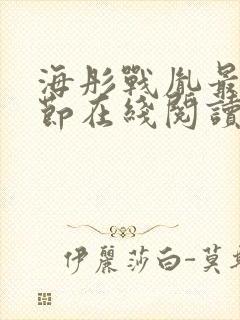 海彤戰胤最
節在綫閱讀
伊麗莎白-莫